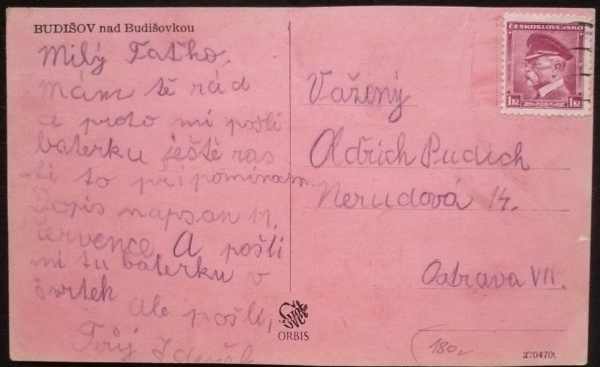 BUDIŠOV nad Budišovkou
Milý Taťko.
Mám tě rád
a proto mi pošli
baterku ještě ras
ti to připomínam
Dopis napsan 11.
července A pošli
mi tu baterku v
čvrtek
Ale pošli,
Tvůj Zdeněk
ČESKOSLOVENSKO
1Kč 1Kč
Važený
Oldřich Pudich
Nerudová 14.
Ostrava VII.
ORBIS
180,-
270470.